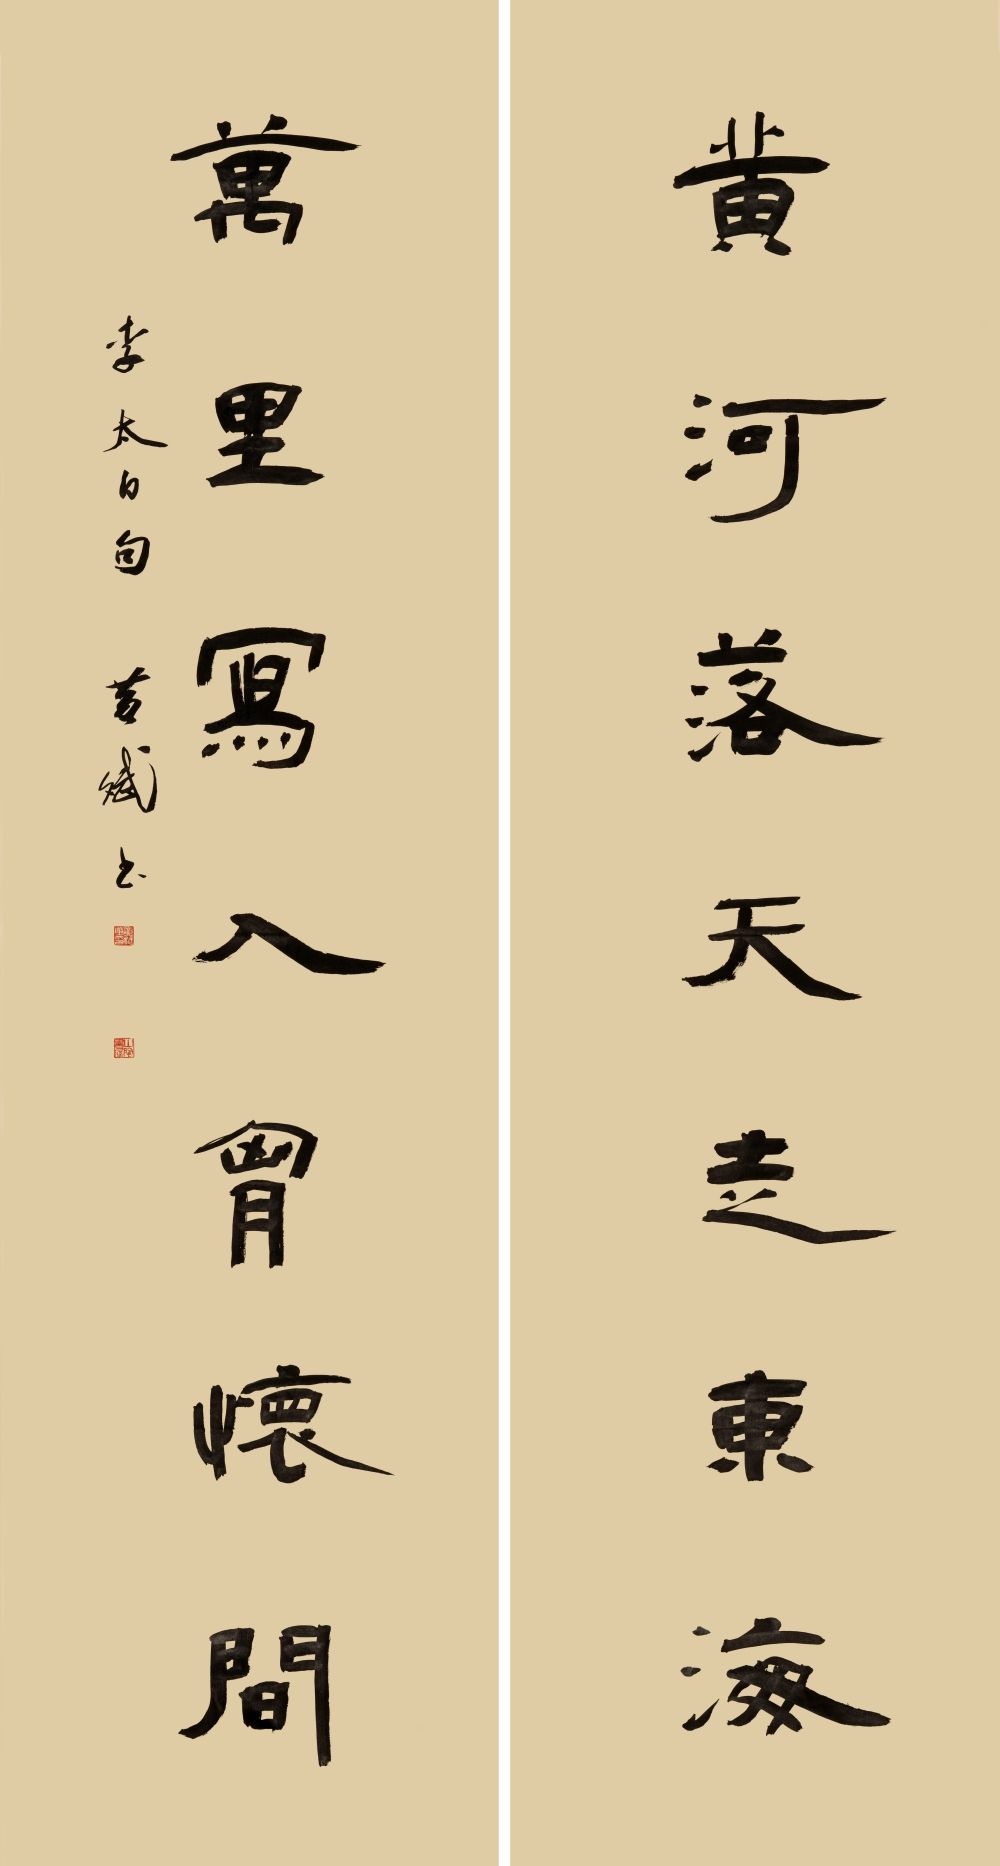 黄河落天走東海
萬里寫入胷懷間
李太白句 黄斌书